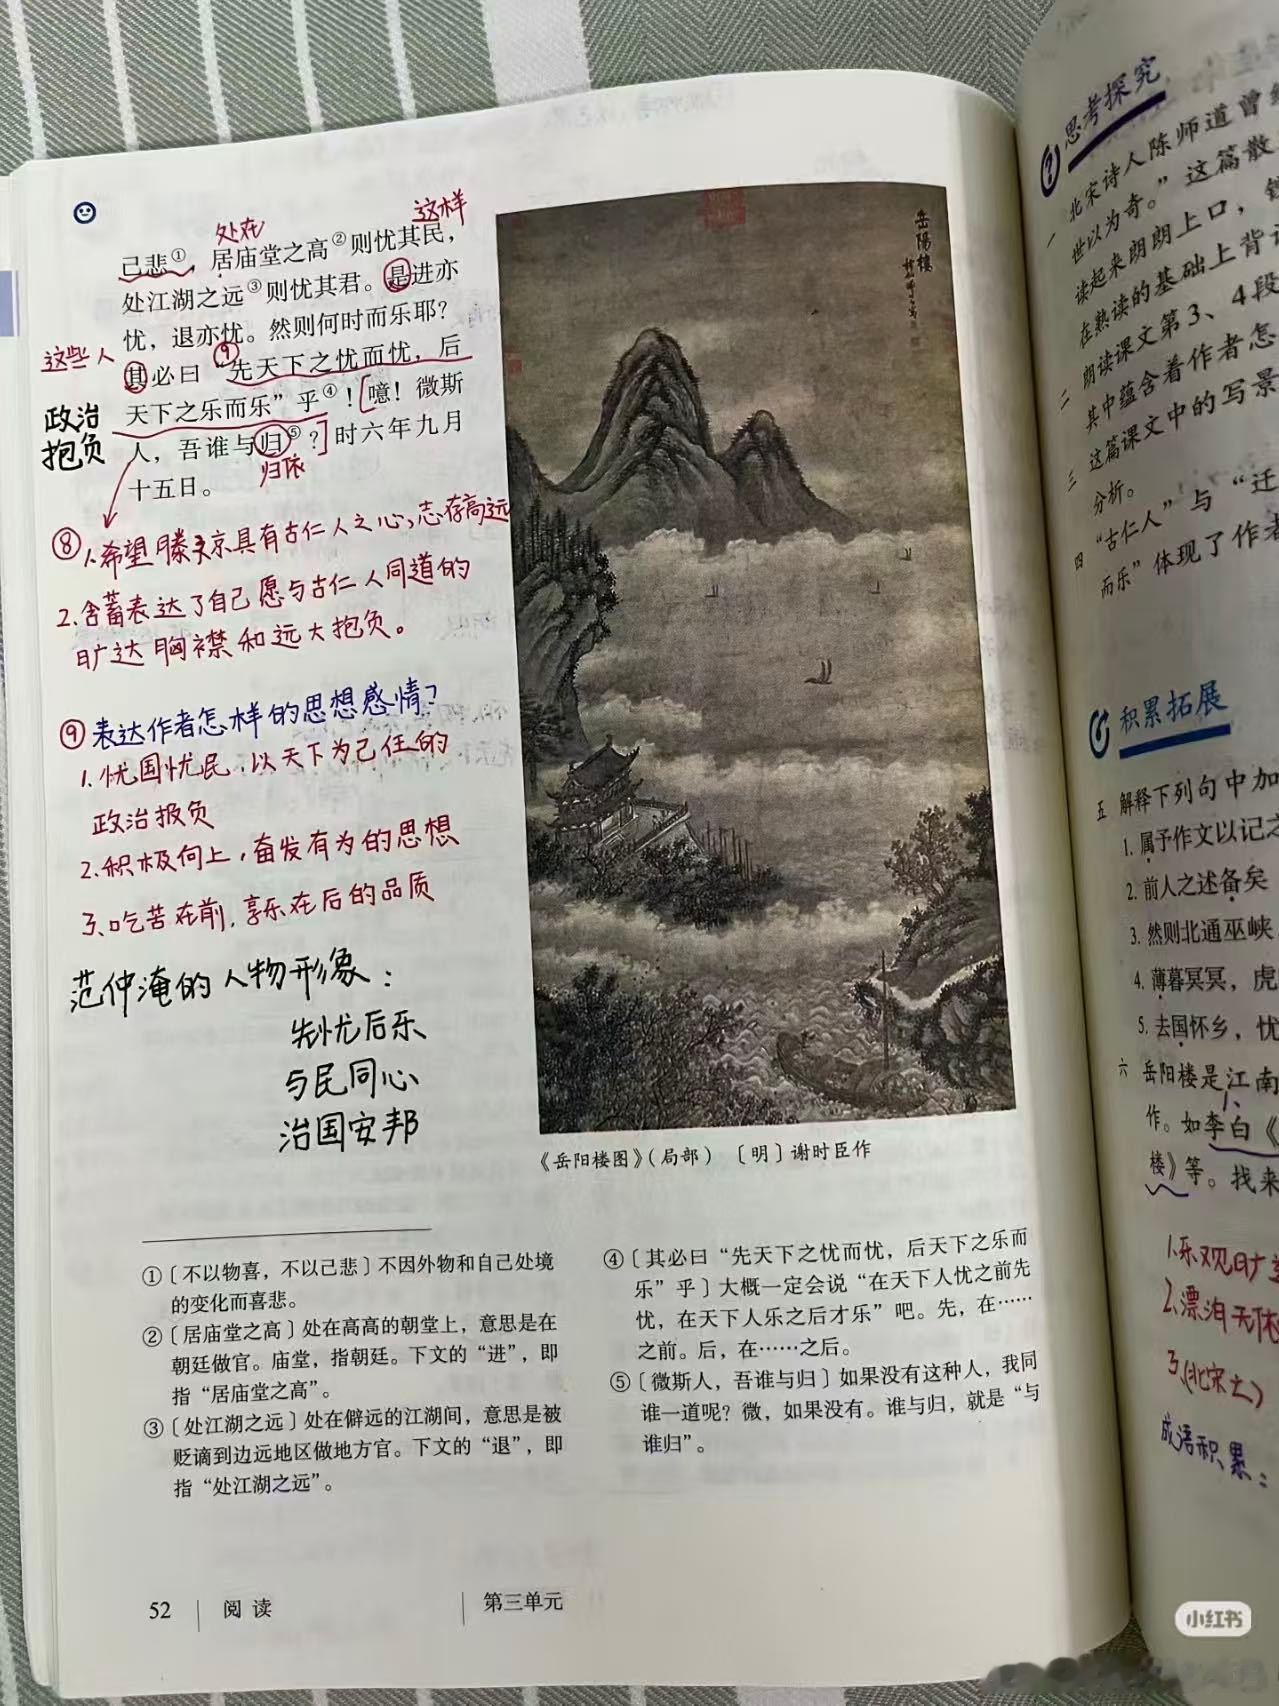 处在
这样
己悲①，居庙堂之高②则忧其民，
处江湖之远③则忧其君。是进亦
忧，退亦忧。然则何时而乐耶？
这些人
⑨
其必曰“先天下之忧而忧，后
天下之乐而乐”乎④！[噫！微斯
政治
抱负
人，吾谁与归⑤？]时六年九月
归依
十五日。
⑧1.希望滕子京具有古仁人之心，志存高远
2.含蓄表达了自己愿与古仁人同道的
旷达胸襟和远大抱负。
⑨表达作者怎样的思想感情？
1.忧国忧民，以天下为己任的
政治报负
2.积极向上，奋发有为的思想
3.吃苦在前，享乐在后的品质
范仲淹的人物形象：
先忧后乐
与民同心
治国安邦
岳陽樓
《岳阳楼图》（局部）〔明〕谢时臣作
①〔不以物喜，不以己悲〕不因外物和自己处境
的变化而喜悲。
②〔居庙堂之高〕处在高高的朝堂上，意思是在
朝廷做官。庙堂，指朝廷。下文的“进”，即
指“居庙堂之高”。
③〔处江湖之远〕处在僻远的江湖间，意思是被
贬谪到边远地区做地方官。下文的“退”，即
指“处江湖之远”。
④〔其必曰“先天下之忧而忧，后天下之乐而
乐”乎〕大概一定会说“在天下人忧之前先
忧，在天下人乐之后才乐”吧。先，在……
之前。后，在……之后。
⑤〔微斯人，吾谁与归〕如果没有这种人，我同
谁一道呢？微，如果没有。谁与归，就是“与
谁归”。
52
阅读
第三单元
思考探究
一 北宋诗人陈师道曾经
世以为奇。”这篇散
读起来朗朗上口，
在熟读的基础上背
二 朗读课文第3、4段
其中蕴含着作者怎
三 这篇课文中的写景
分析。
四 “古仁人”与“迁
而乐”体现了作者
积累拓展
五 解释下列句中加
1.属予作文以记之
2.前人之述备矣
3.然则北通巫峡
4.薄暮冥冥，虎
5.去国怀乡，忧
六 岳阳楼是江南
作。如李白《
楼》等。找来
1.乐观旷
2.漂泊无依
3.(北宋
成语积累：
小红书